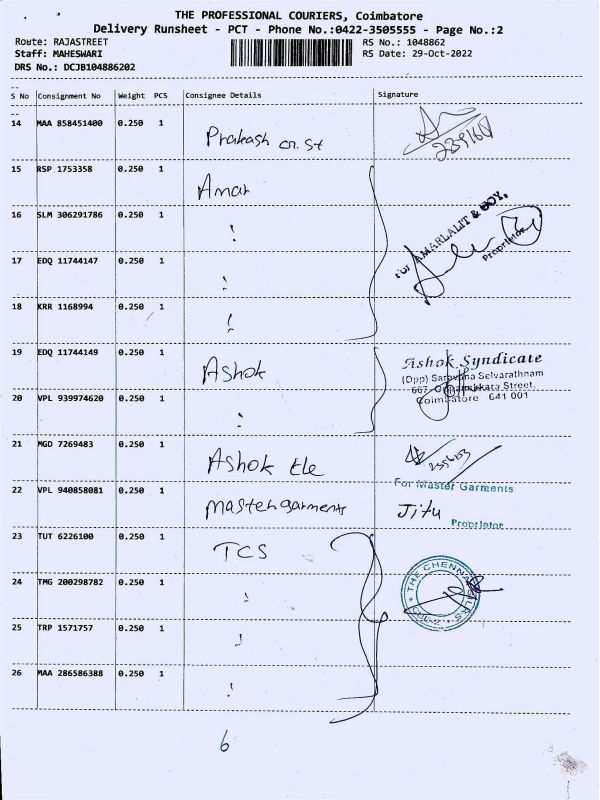 THE PROFESSIONAL COURIERS, Coimbatore
Delivery Runsheet - PCT - Phone No.:0422-3505555 - Page No.:2
Route: RAJASTREET RS No.: 1048862
Staff: MAHESWARI RS Date: 29-Oct-2022
DRS No.: DCJB104886202
--
S No Consignment No Weight PCS Consignee Details Signature
--
14 MAA 858451400 0.250 1 Prakash cn. St
15 RSP 1753358 0.250 1 Amar
16 SLM 306291786 0.250 1 AMARLALIT &
Proprietor
17 EDQ 11744147 0.250 1
18 KRR 1168994 0.250 1
19 EDQ 11744149 0.250 1 Ashok Ashok Syndicate
(Opp) Saravana Selvarathnam
Street,
20 VPL 939974620 0.250 1 Coimbatore 641 001
21 MGD 7269483 0.250 1 Ashok tle
22 VPL 940858081 0.250 1 master garments For Master Garments
Jitu
Proprietor
23 TUT 6226100 0.250 1 TCS
24 TMG 200298782 0.250 1 THE CHENNAI SILKS
25 TRP 1571757 0.250 1
26 MAA 286586388 0.250 1
6